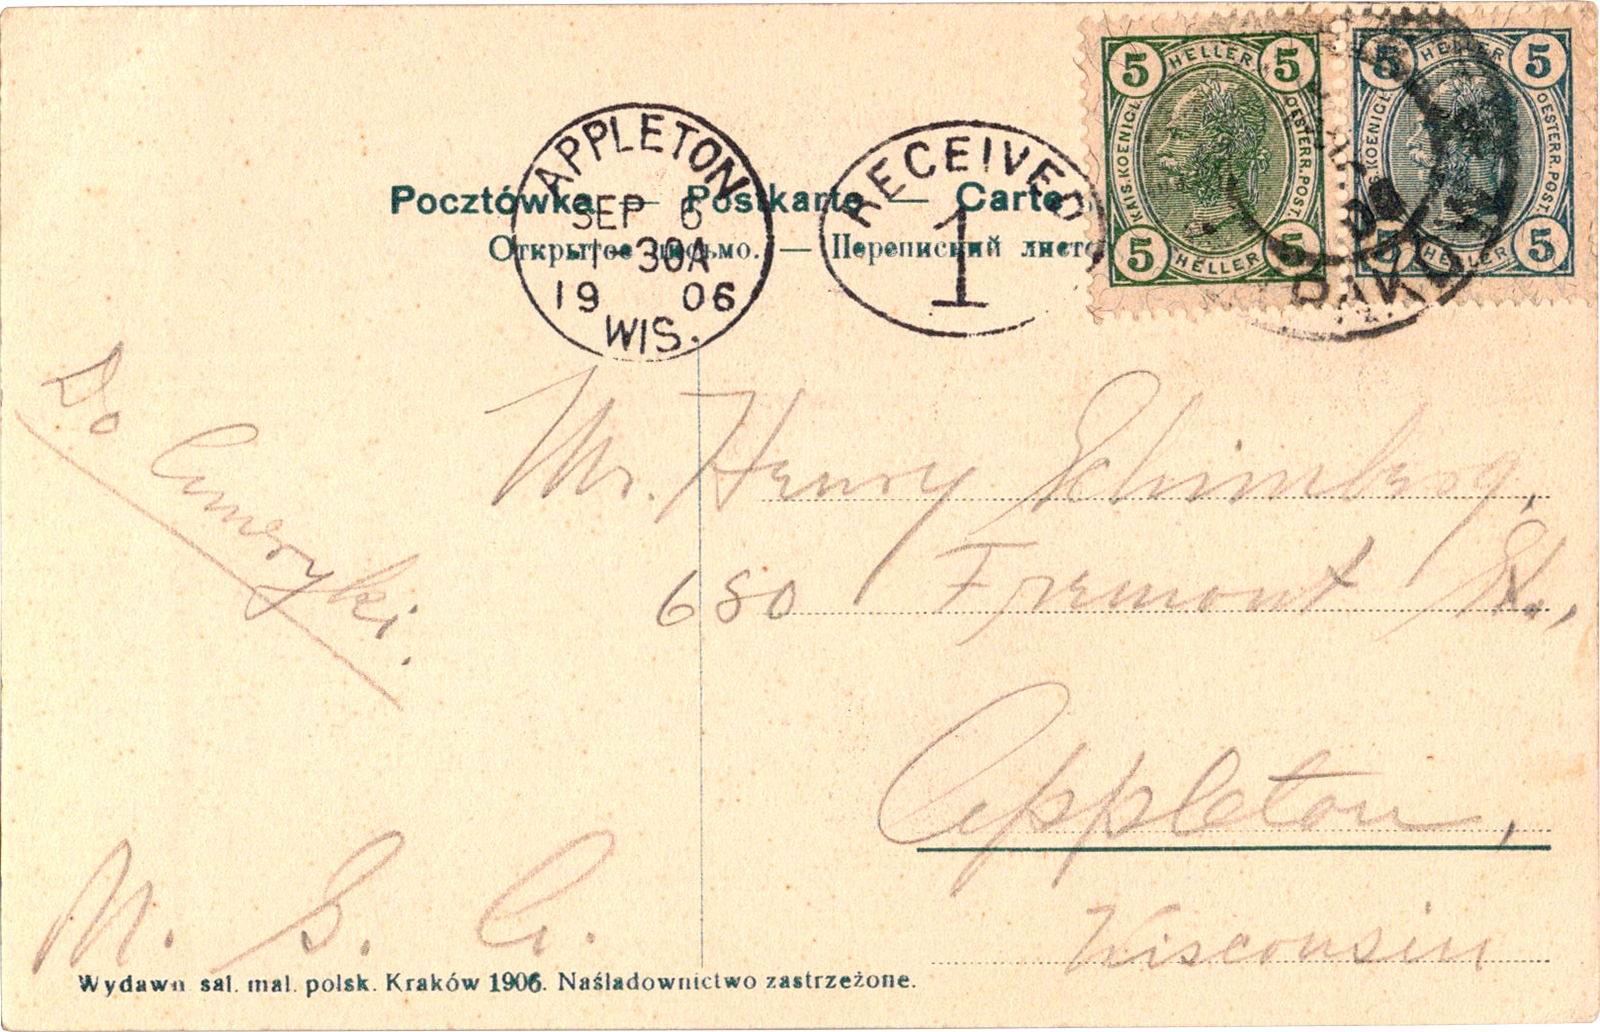 5 HELLER 5
KAIS. KOENIGL. OESTERR. POST.
5 HELLER 5
5 HELLER 5
KAIS. KOENIGL. OESTERR. POST.
5 HELLER 5
APPLETON
SEP 6
1-30A
19 06
WIS.
RECEIVED
1
Pocztówka — Postkarte — Carte
Открытое письмо. — Переписний листо
Do Ameryki.
Mr. Henry Schimberg,
680 Fremont St.,
Appleton,
Wisconsin
U. S. A.
Wydawn sal. mal. polsk. Kraków 1906. Naśladownictwo zastrzeżone.